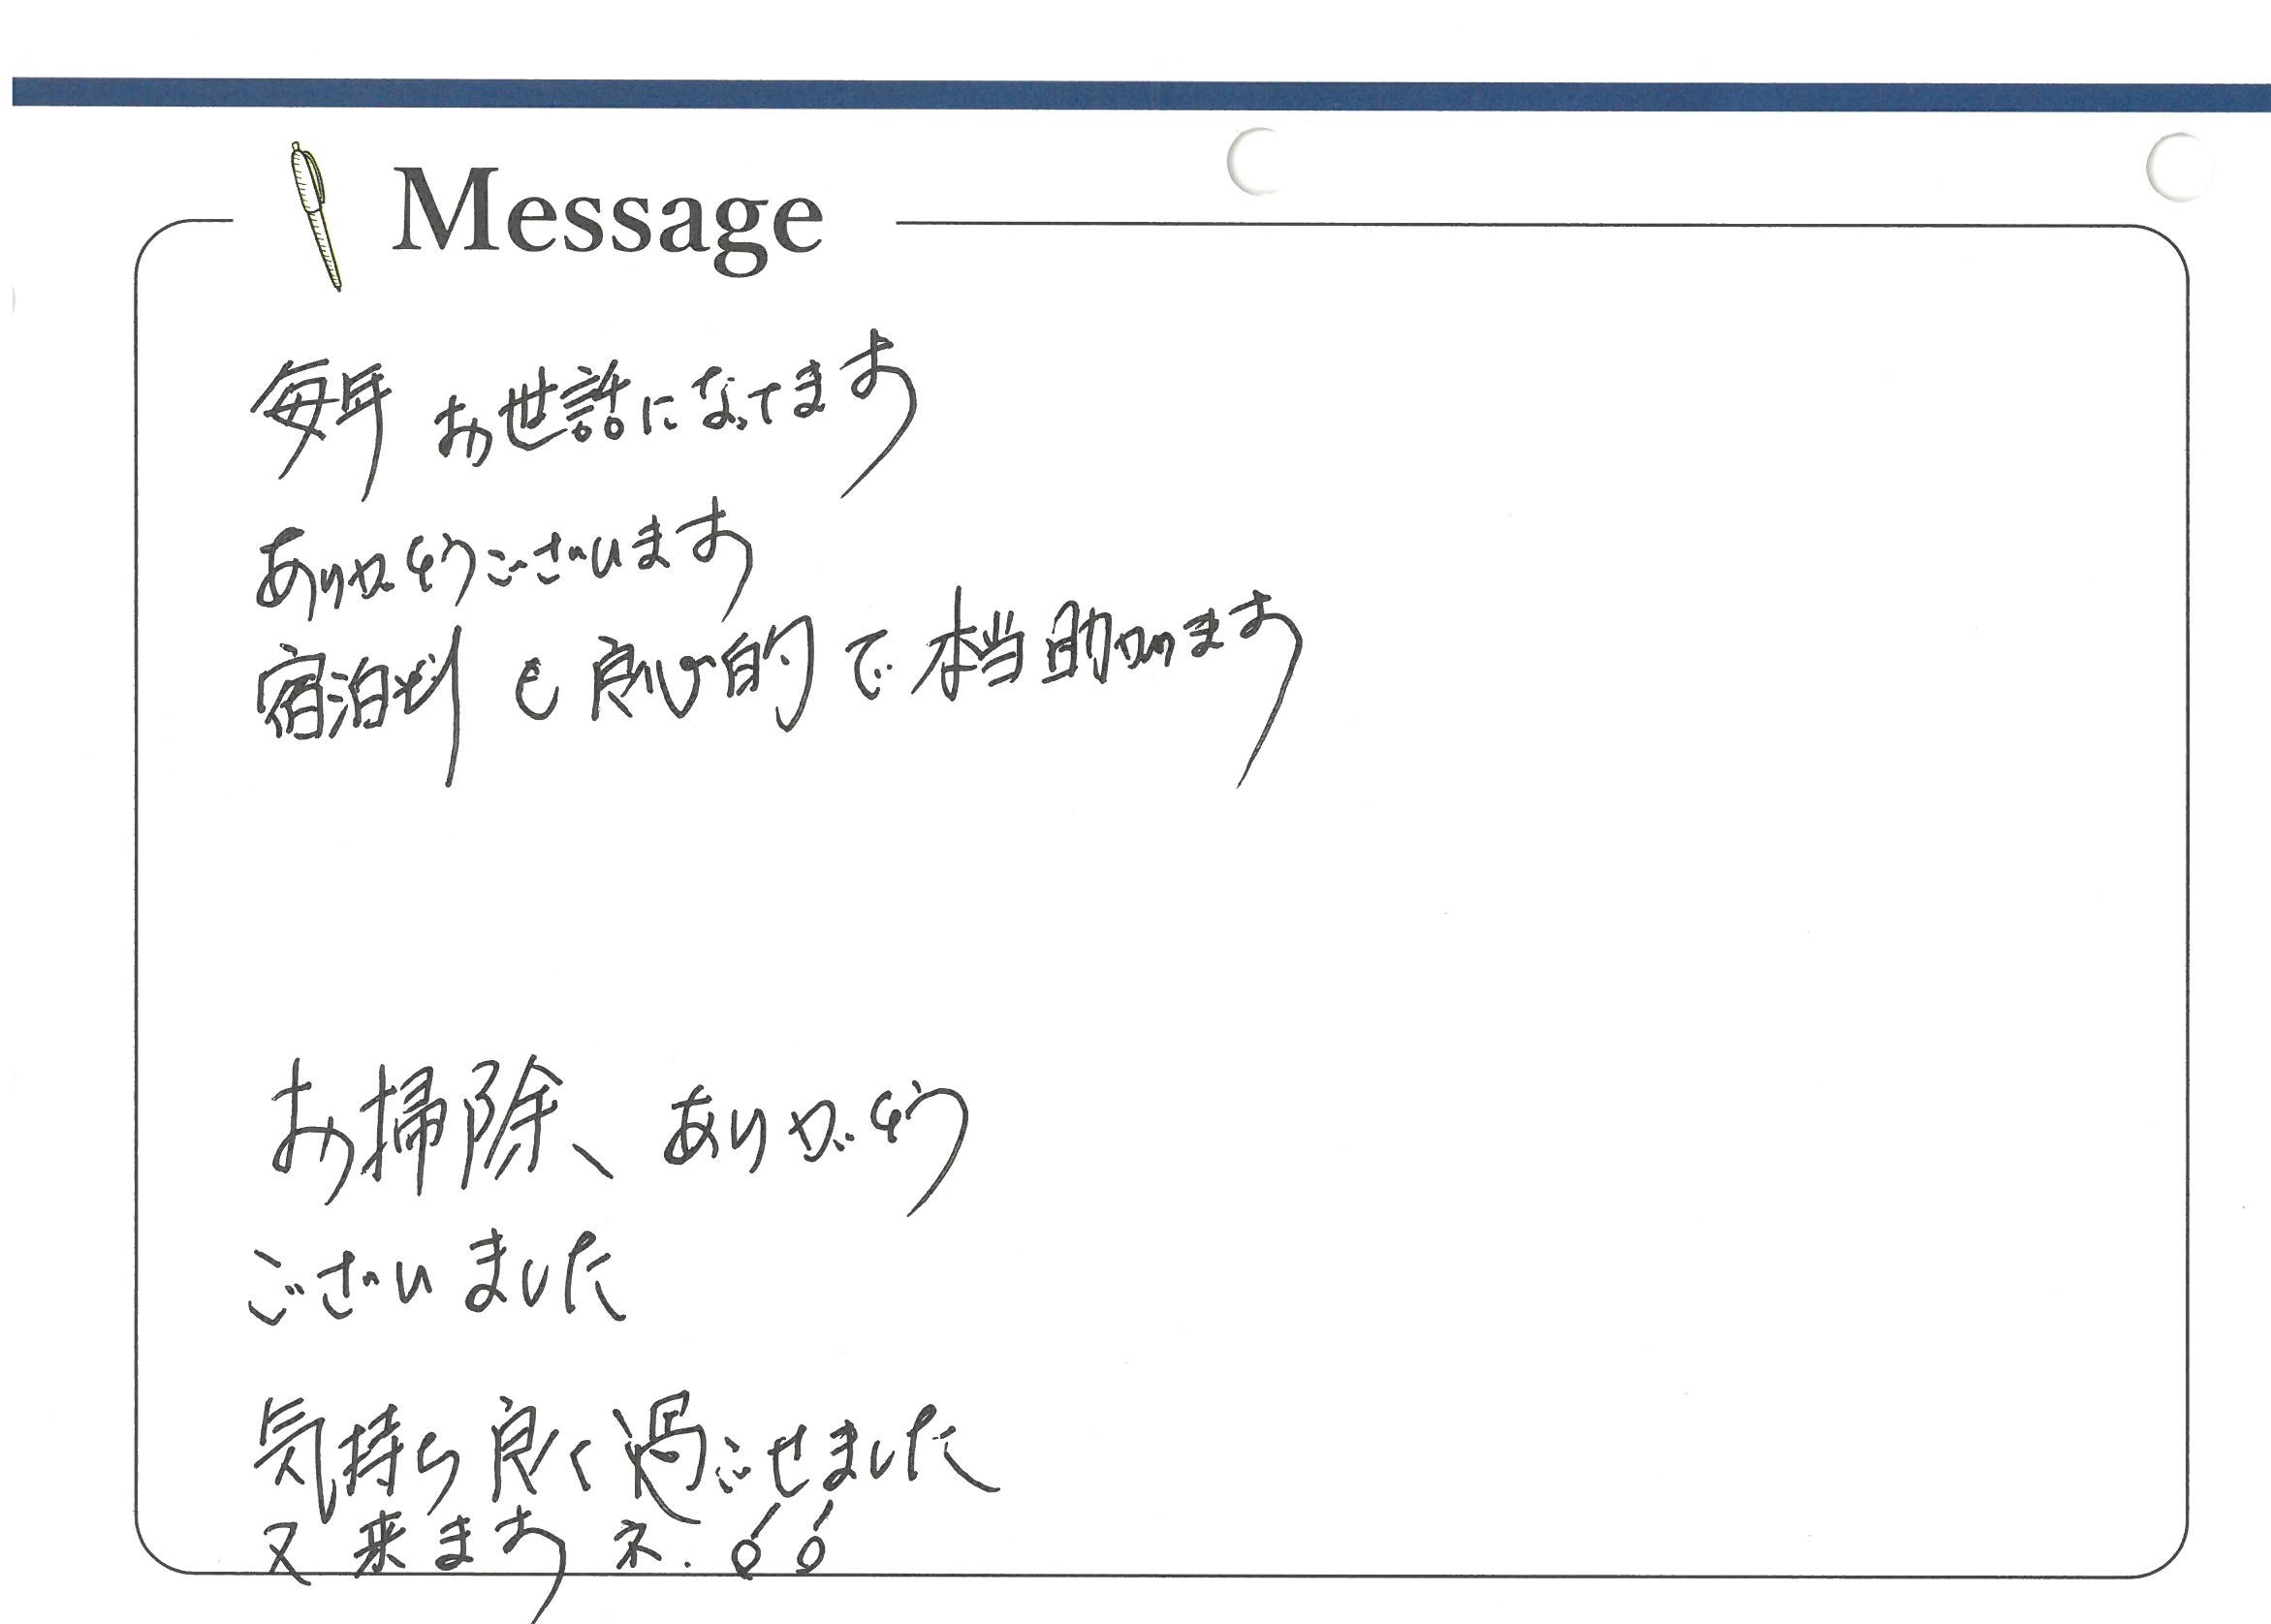 Message
毎年 お世話になってます
ありがとうございます
宿泊料 も 良心的 で 本当 助かります
お掃除、ありがとう
ございました
気持ち良く過ごせました
又 来ます ネ.!!